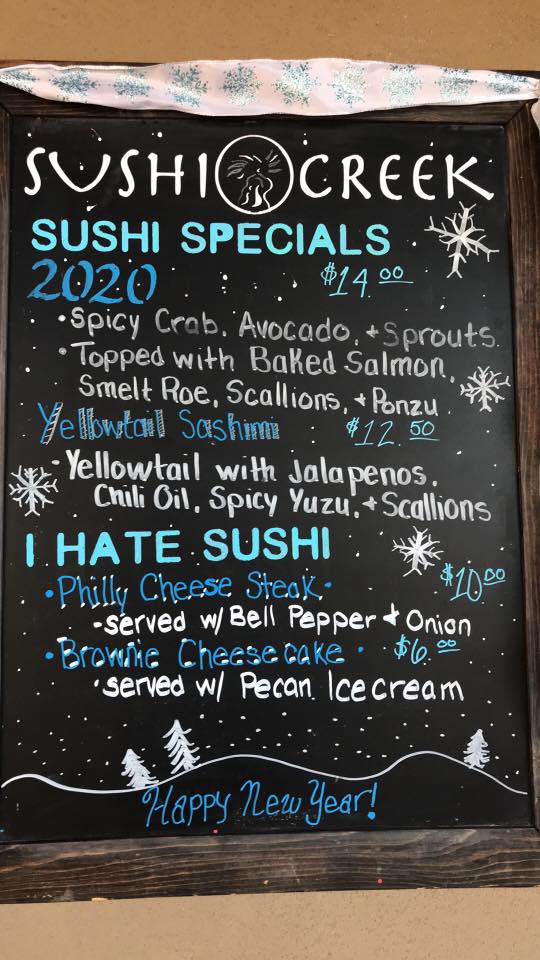 SUSHI CREEK
SUSHI SPECIALS
2020 $14.00
• Spicy Crab, Avocado, + Sprouts
• Topped with Baked Salmon,
Smelt Roe, Scallions, + Ponzu
Yellowtail Sashimi $12.50
• Yellowtail with Jalapenos,
Chili Oil, Spicy Yuzu, + Scallions
I HATE SUSHI
• Philly Cheese Steak • $10.00
- served w/ Bell Pepper + Onion
• Brownie Cheesecake • $6.00
• served w/ Pecan Ice cream
Happy New Year!